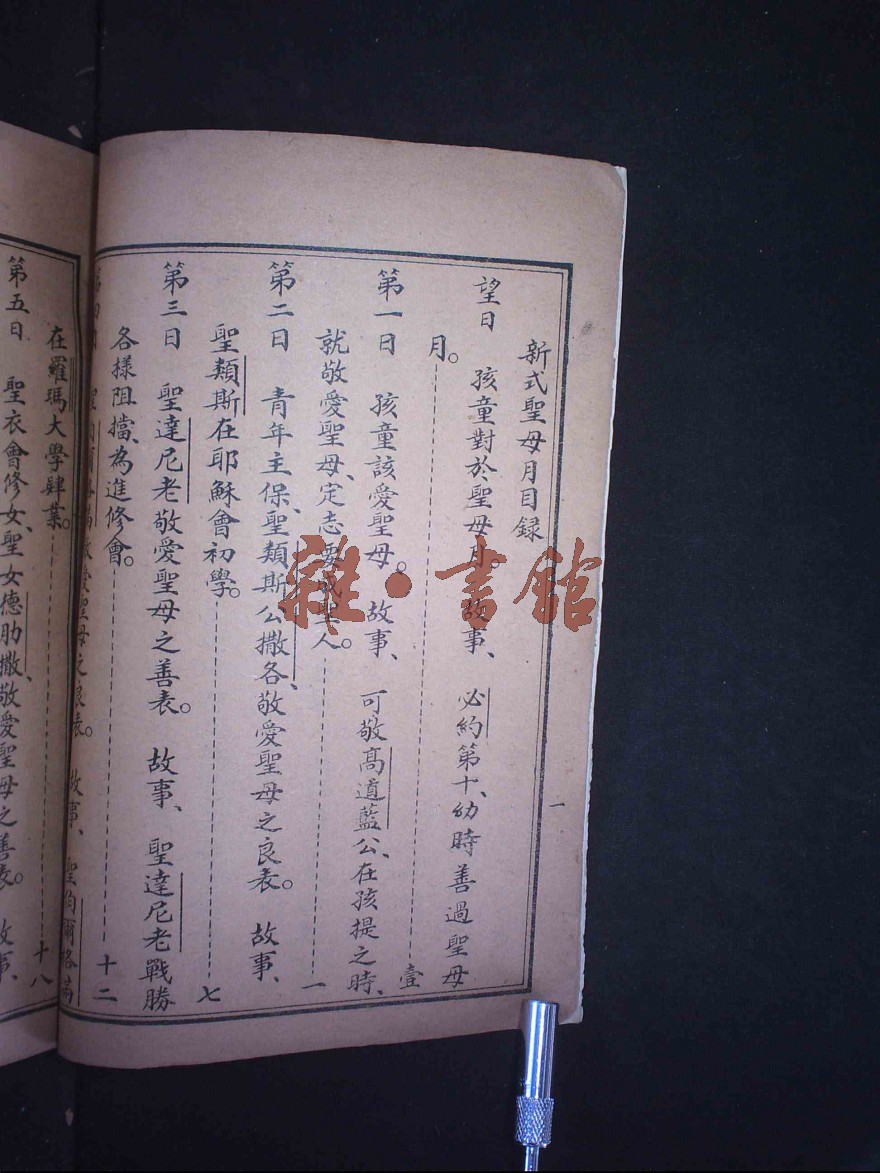 新式聖母月目錄
望日　孩童對於聖母月。故事、必約第十、幼時善過聖母
月。壹
第一日　孩童該愛聖母。故事、可敬高道藍公、在孩提之時、
就敬愛聖母、定志要成聖人。一
第二日　青年主保、聖類斯公撒各、敬愛聖母之良表。故事、
聖類斯在耶穌會初學。七
第三日　聖達尼老敬愛聖母之善表。故事、聖達尼老戰勝
各樣阻擋、為進修會。十二
愛聖母之良表。故事、聖伯爾格滿
在羅瑪大學肄業。十八
第五日　聖衣會修女、聖女德肋撒、敬愛聖母之善表。故事、
一
雜·書館